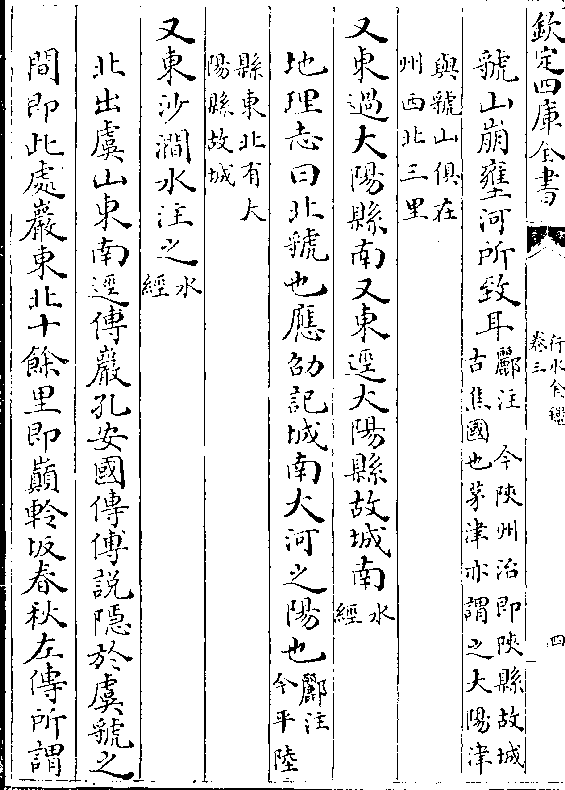 欽定四庫全書
行水金鑑
卷三
四
虢山崩壅河所致耳酈注 今陜州治即陜縣故城
古焦國也茅津亦謂之大陽津
與虢山俱在
州西北三里
又東過大陽縣南又東逕大陽縣故城南水
經
地理志曰北虢也應劭記城南大河之陽也酈注
今平陸
縣東北有大
陽縣故城
又東沙澗水注之水
經
北出虞山東南逕傅巖孔安國傳傅說隱於虞虢之
間即此處巖東北十餘里即巔軨坂春秋左傳所謂